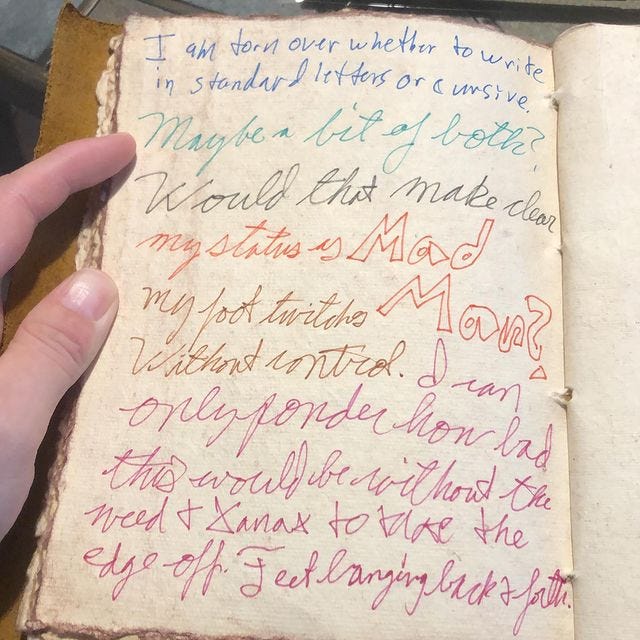 I am torn over whether to write
in standard letters or cursive.
Maybe a bit of both?
Would that make clear
my status as Mad
Man?
my foot twitches
Without control. I can
only ponder how bad
this would be without the
weed & Xanax to take the
edge off. Feet banging back & forth.